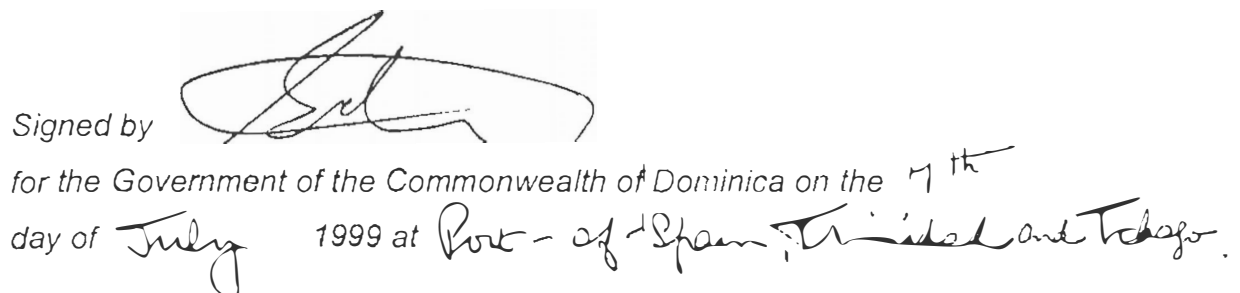 Signed by
for the Government of the Commonwealth of Dominica on the 7th
day of July 1999 at Port-of-Spain, Trinidad and Tobago.